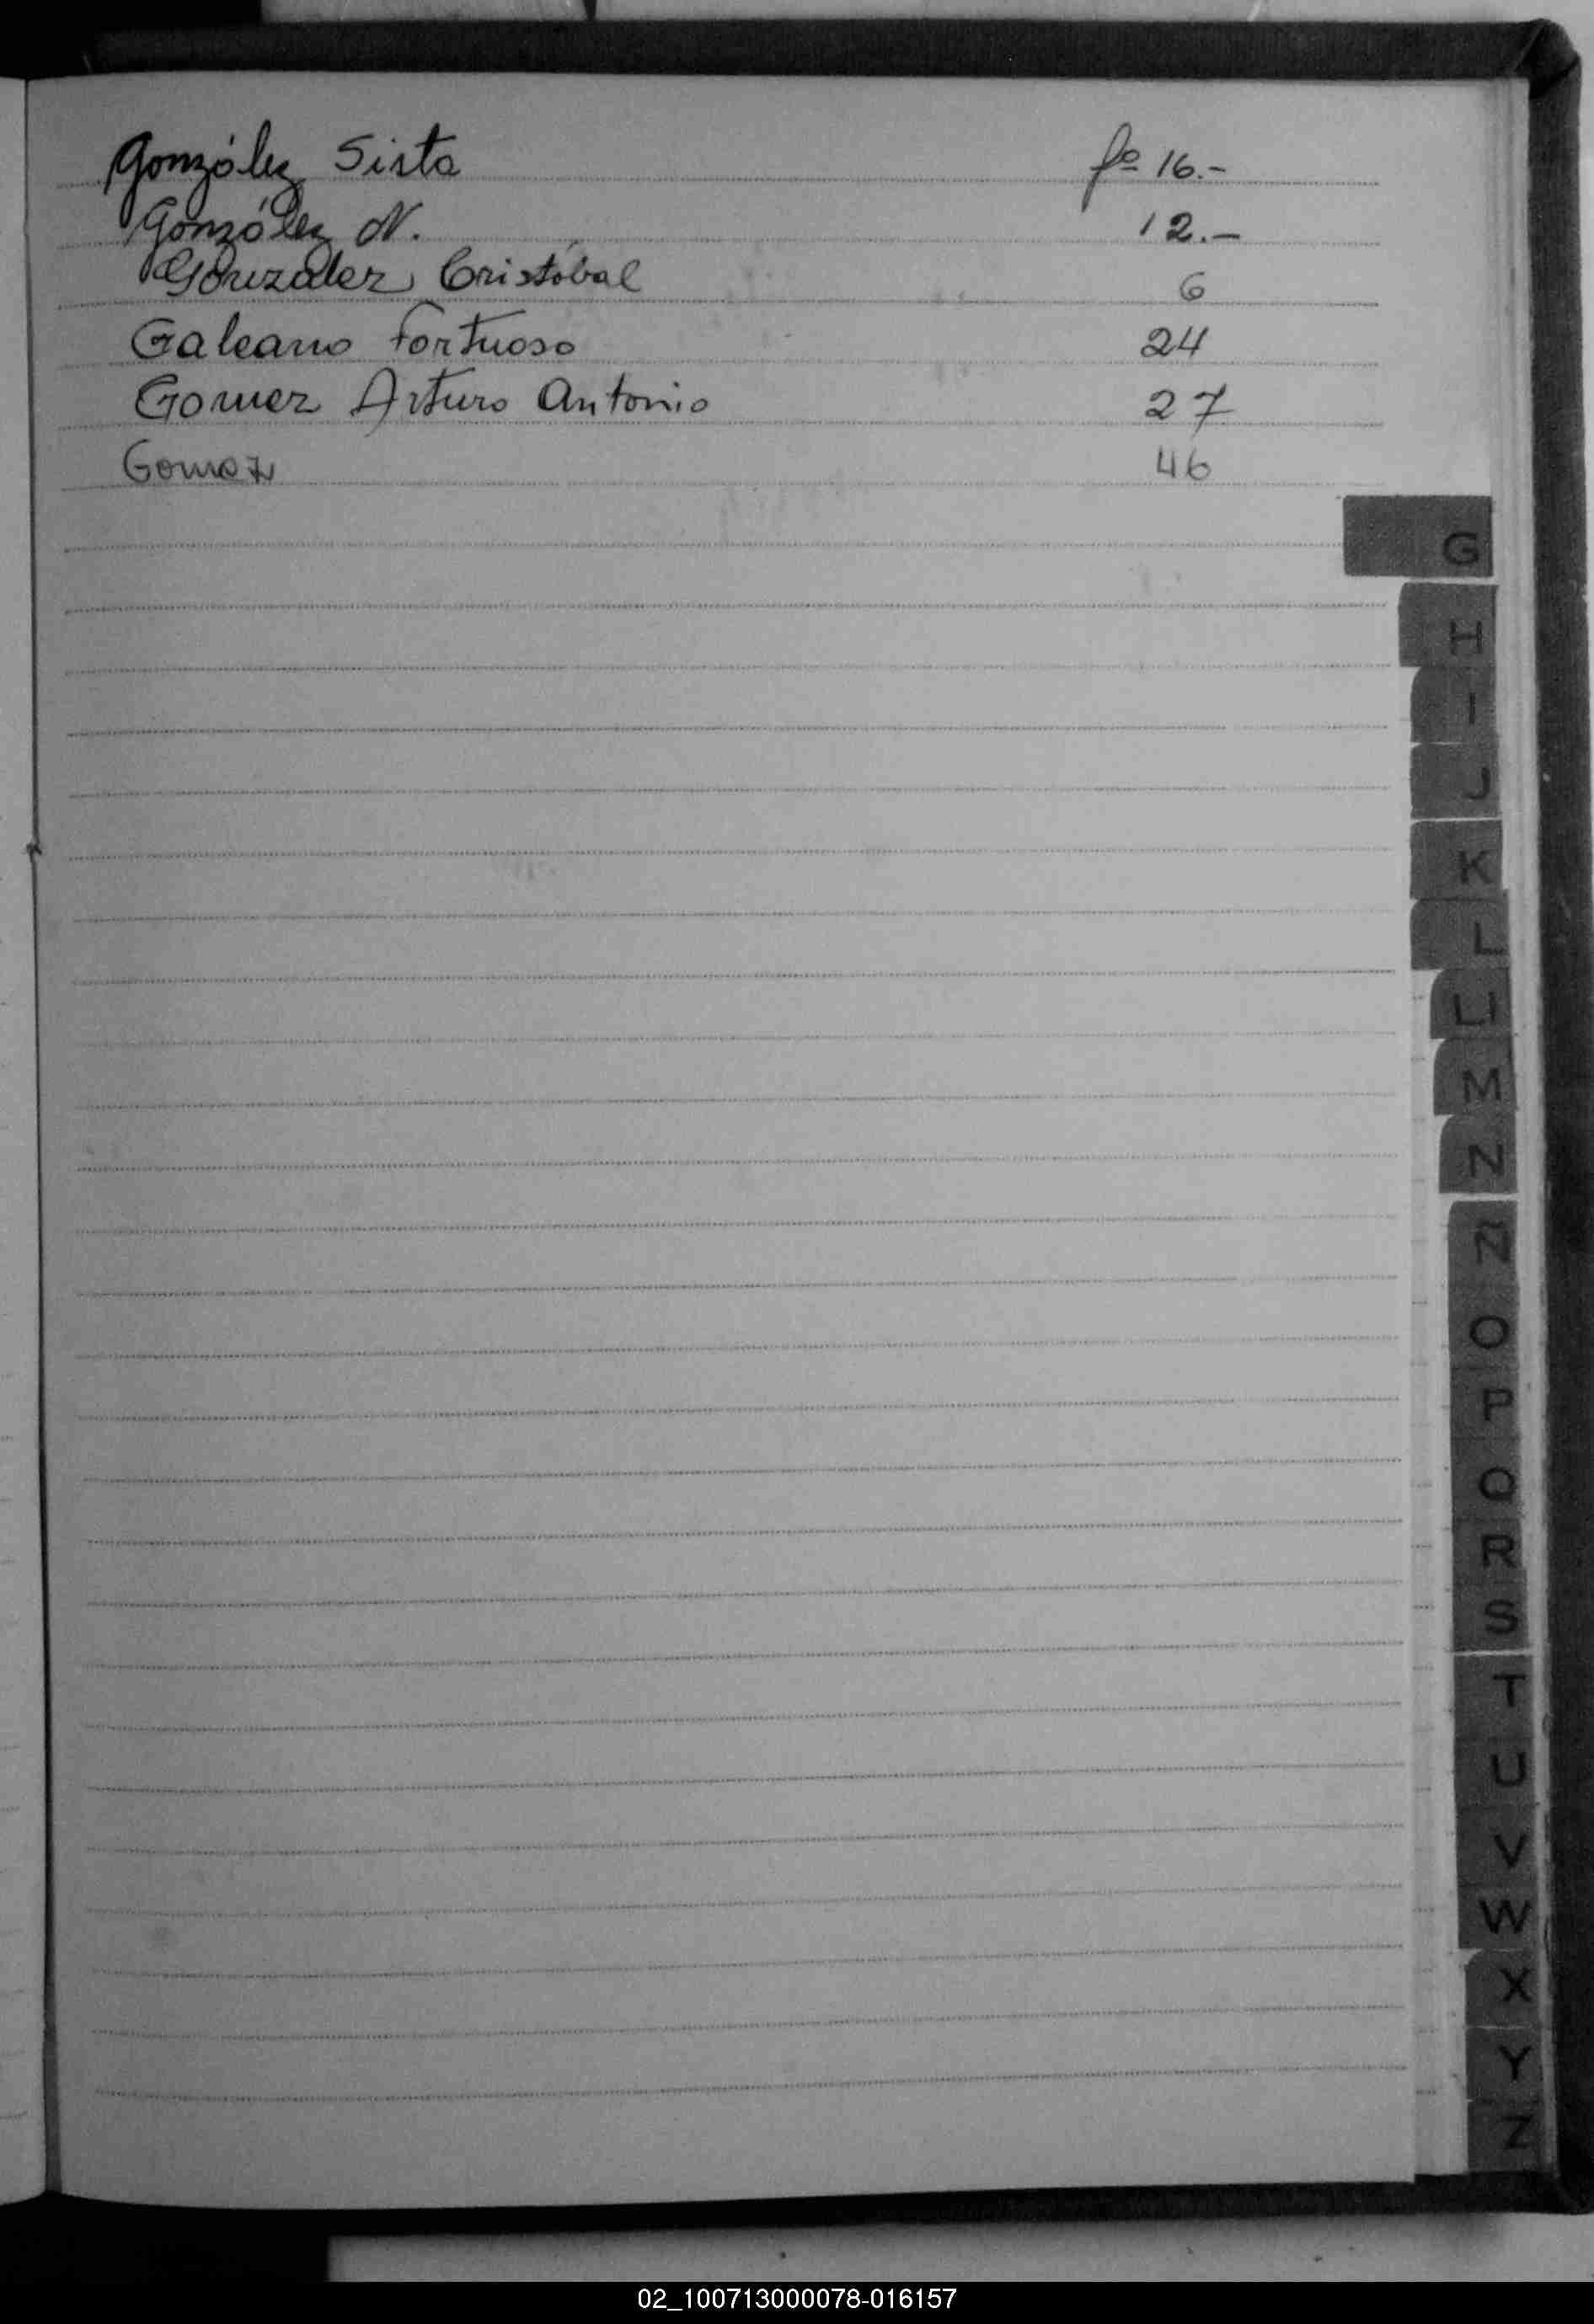 González Sista fº 16.-
González N. 12.-
Gonzalez Cristóbal 6
Galeano Fortuoso 24
Gomez Arturo Antonio 27
Gomez 46
G
H
I
J
K
L
Ll
M
N
Ñ
O
P
Q
R
S
T
U
V
W
X
Y
Z
02_100713000078-016157